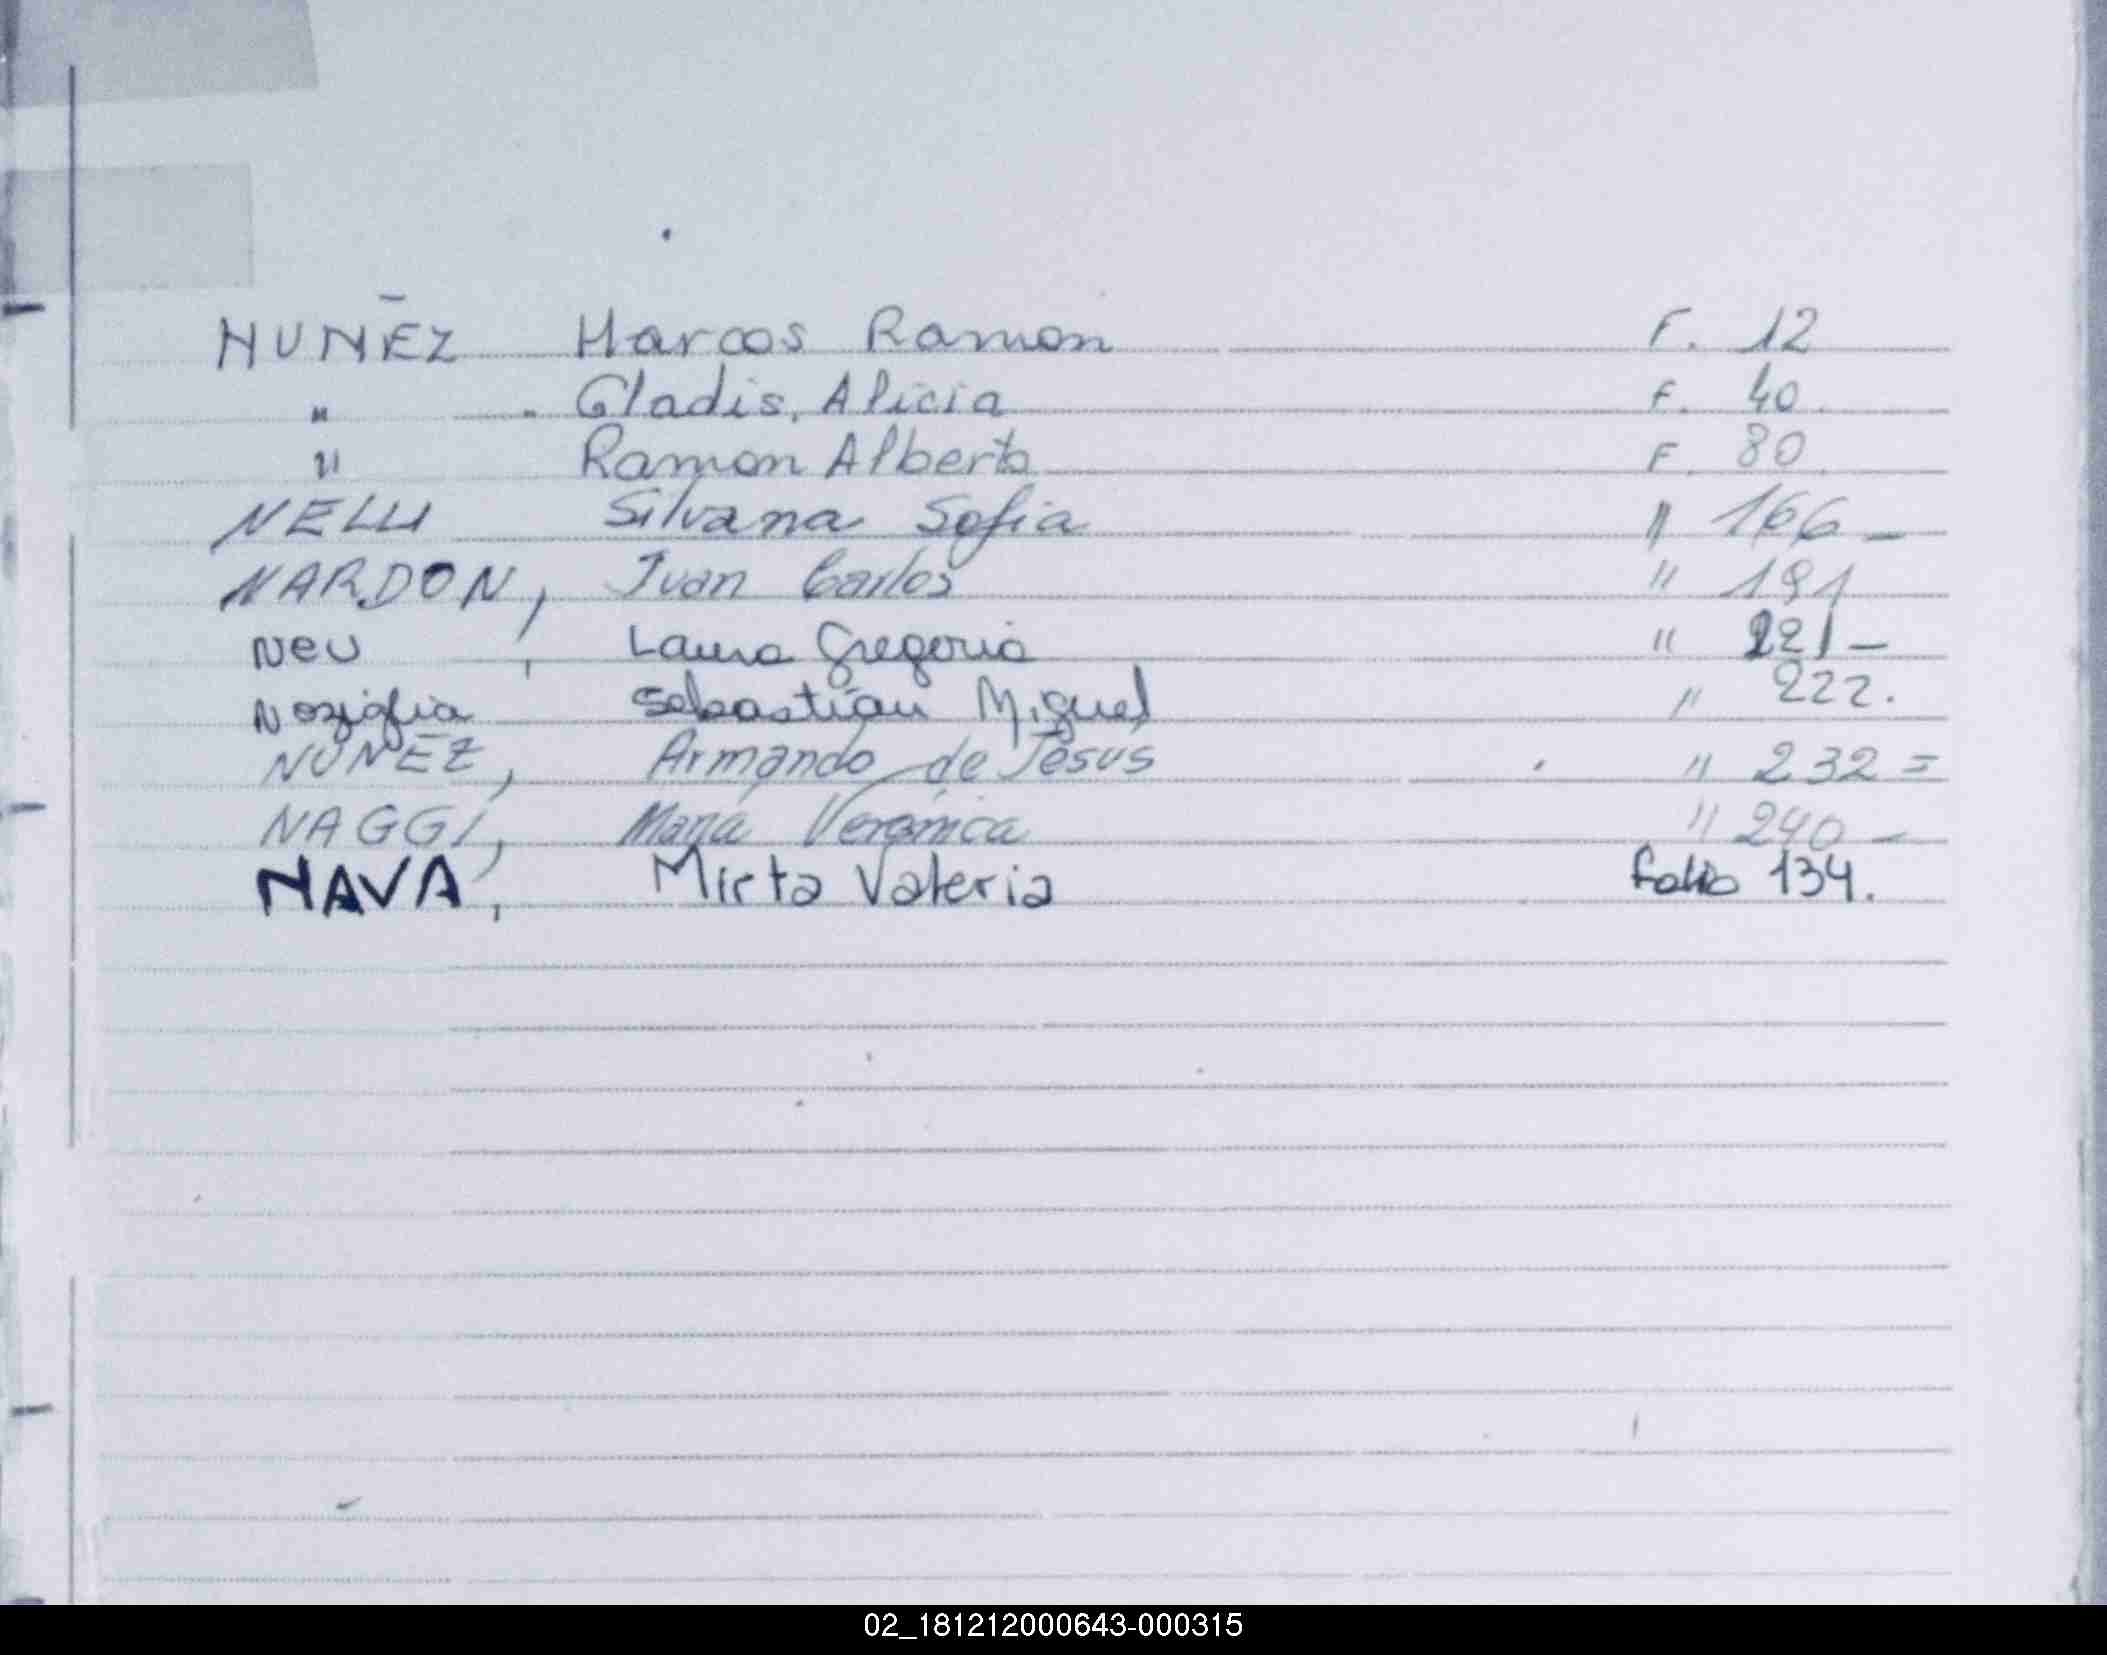 NUÑEZ Marcos Ramon F. 12
" Gladis Alicia F. 40
" Ramon Alberto F. 80
NELLI Silvana Sofia " 166 -
NARDON, Juan Carlos " 191
Neu, Laura Gregoria " 221 -
Noziglia Sebastián Miguel " 222.
NUÑEZ, Armando de Jesus " 232 =
NAGGI, María Verónica " 240 -
NAVA, Mirta Valeria Folio 134.
02_181212000643-000315